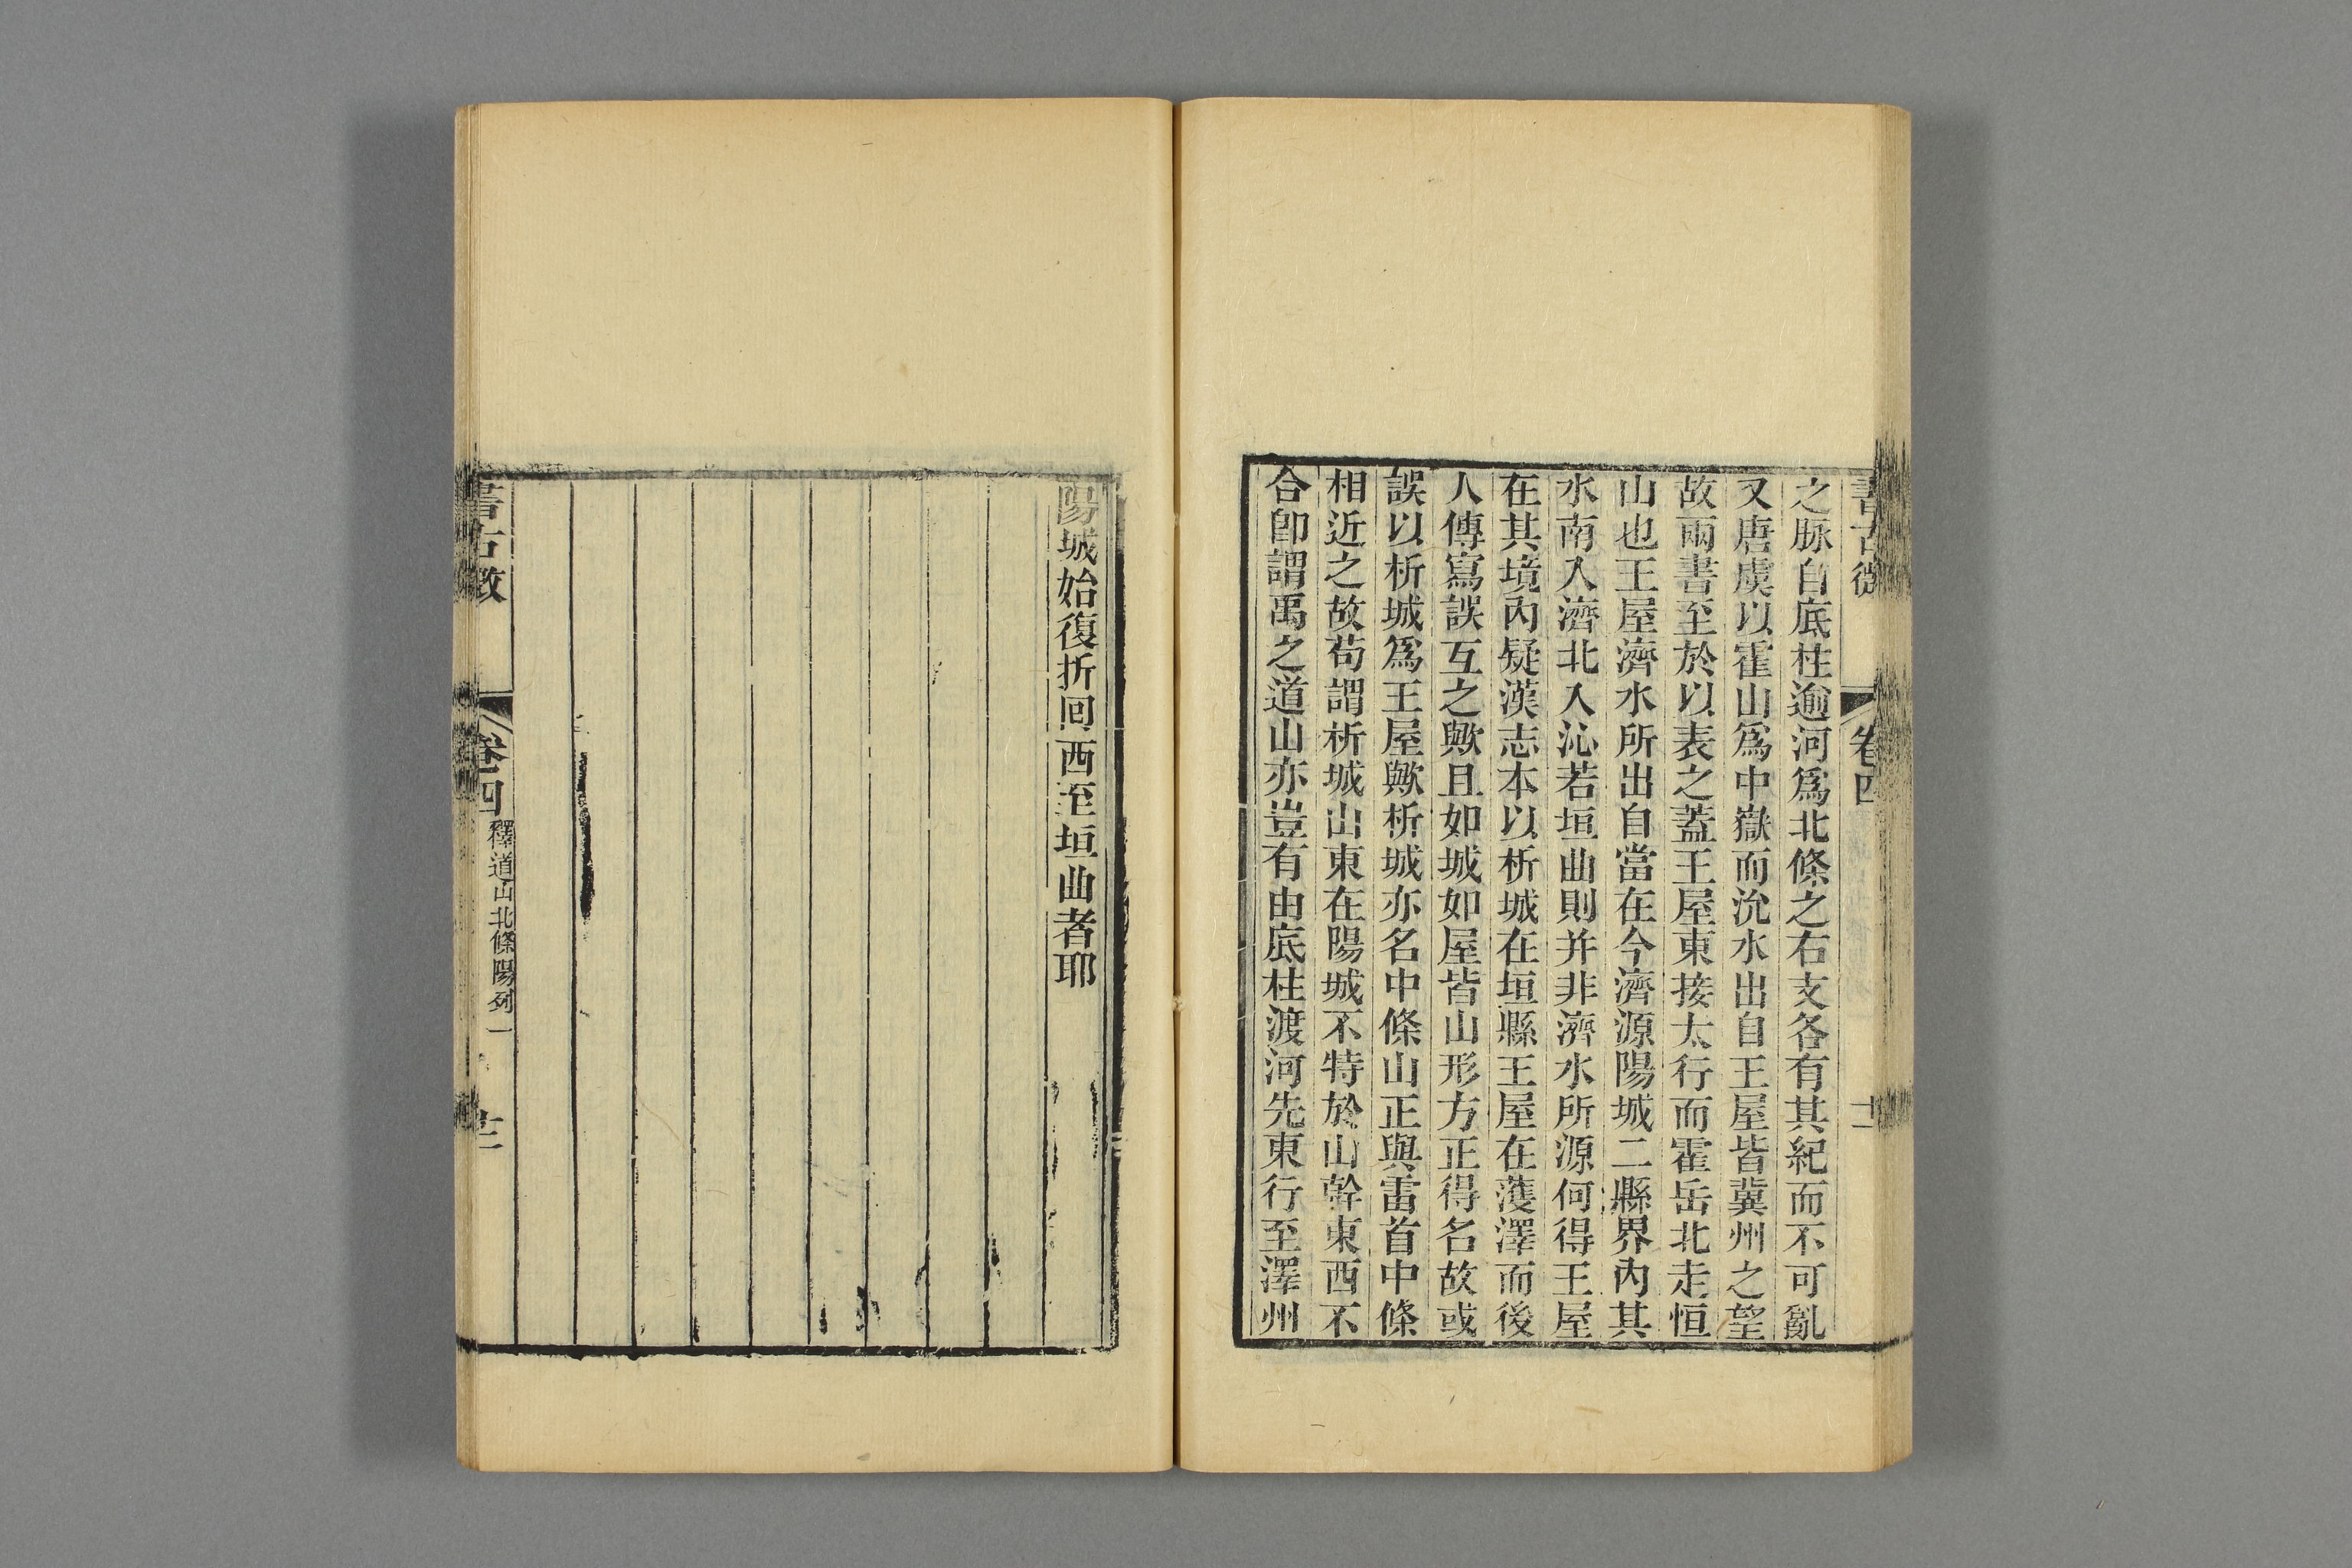 書古微
卷四
十二
之脉自底柱逾河爲北條之右支各有其紀而不可亂
又唐虞以霍山爲中嶽而沇水出自王屋皆冀州之望
故兩書至於以表之蓋王屋東接太行而霍岳北走恒
山也王屋濟水所出自當在今濟源陽城二縣界內其
水南入濟北入沁若垣曲則并非濟水所源何得王屋
在其境內疑漢志本以析城在垣縣王屋在濩澤而後
人傳寫誤互之歟且如城如屋皆山形方正得名故或
誤以析城爲王屋歟析城亦名中條山正與雷首中條
相近之故苟謂析城山東在陽城不特於山幹東西不
合卽謂禹之道山亦豈有由底柱渡河先東行至澤州
陽城始復折回西至垣曲者耶
書古微
卷四
釋道山北條陽列一